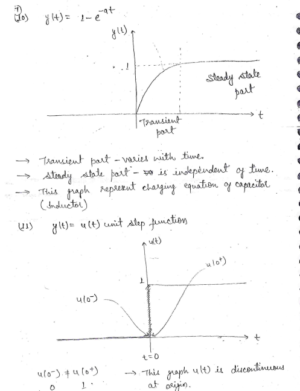 (10) y(t) = 1 - e^-at
y(t)
1
Steady state
part
t
Transient
part
→ Transient part - varies with time.
→ Steady state part - is independent of time.
→ This graph represent charging equation of capacitor
(Inductor)
(11) y(t) = u(t) unit step function
u(t)
1
u(0⁺)
u(0⁻)
t
t=0
u(0⁻) ≠ u(0⁺) → This graph u(t) is discontinuous
0 1 at origin.